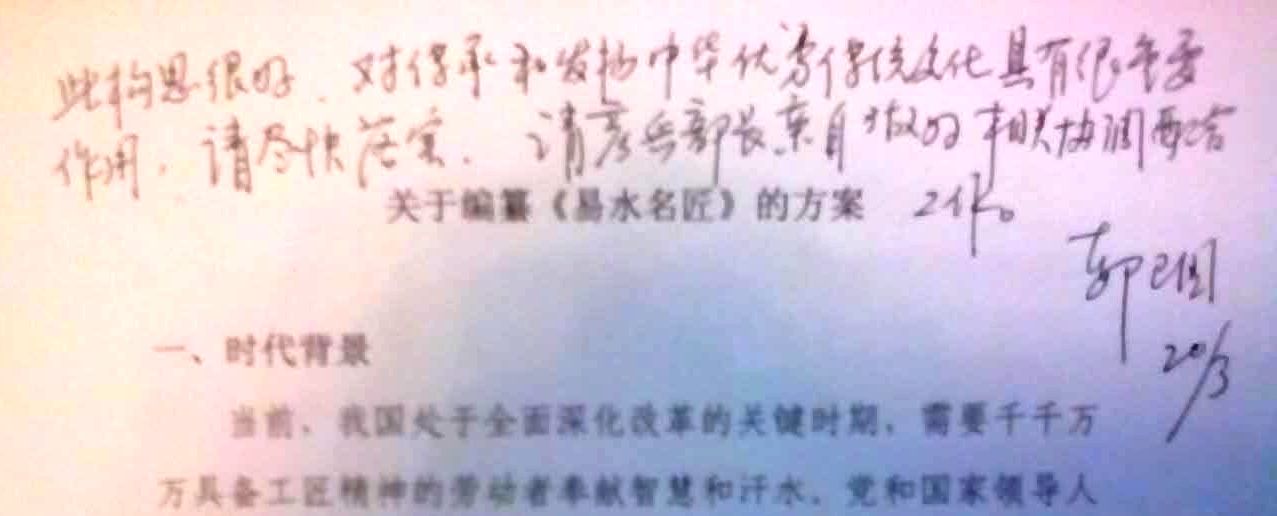 此构思很好、对传承和发扬中华优秀传统文化具有很重要
作用,请尽快落实. 请彦兵部长亲自做好串联协调配合
关于编纂《易水名匠》的方案 工作。
郭
20/3
一、时代背景
当前,我国处于全面深化改革的关键时期,需要千千万
万具备工匠精神的劳动者奉献智慧和汗水。党和国家领导人